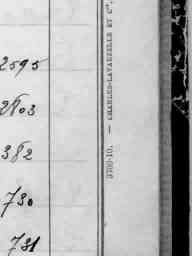 2595
2803
382
730
731
3700-10. — CHARLES-LAVAUZELLE ET Cie.